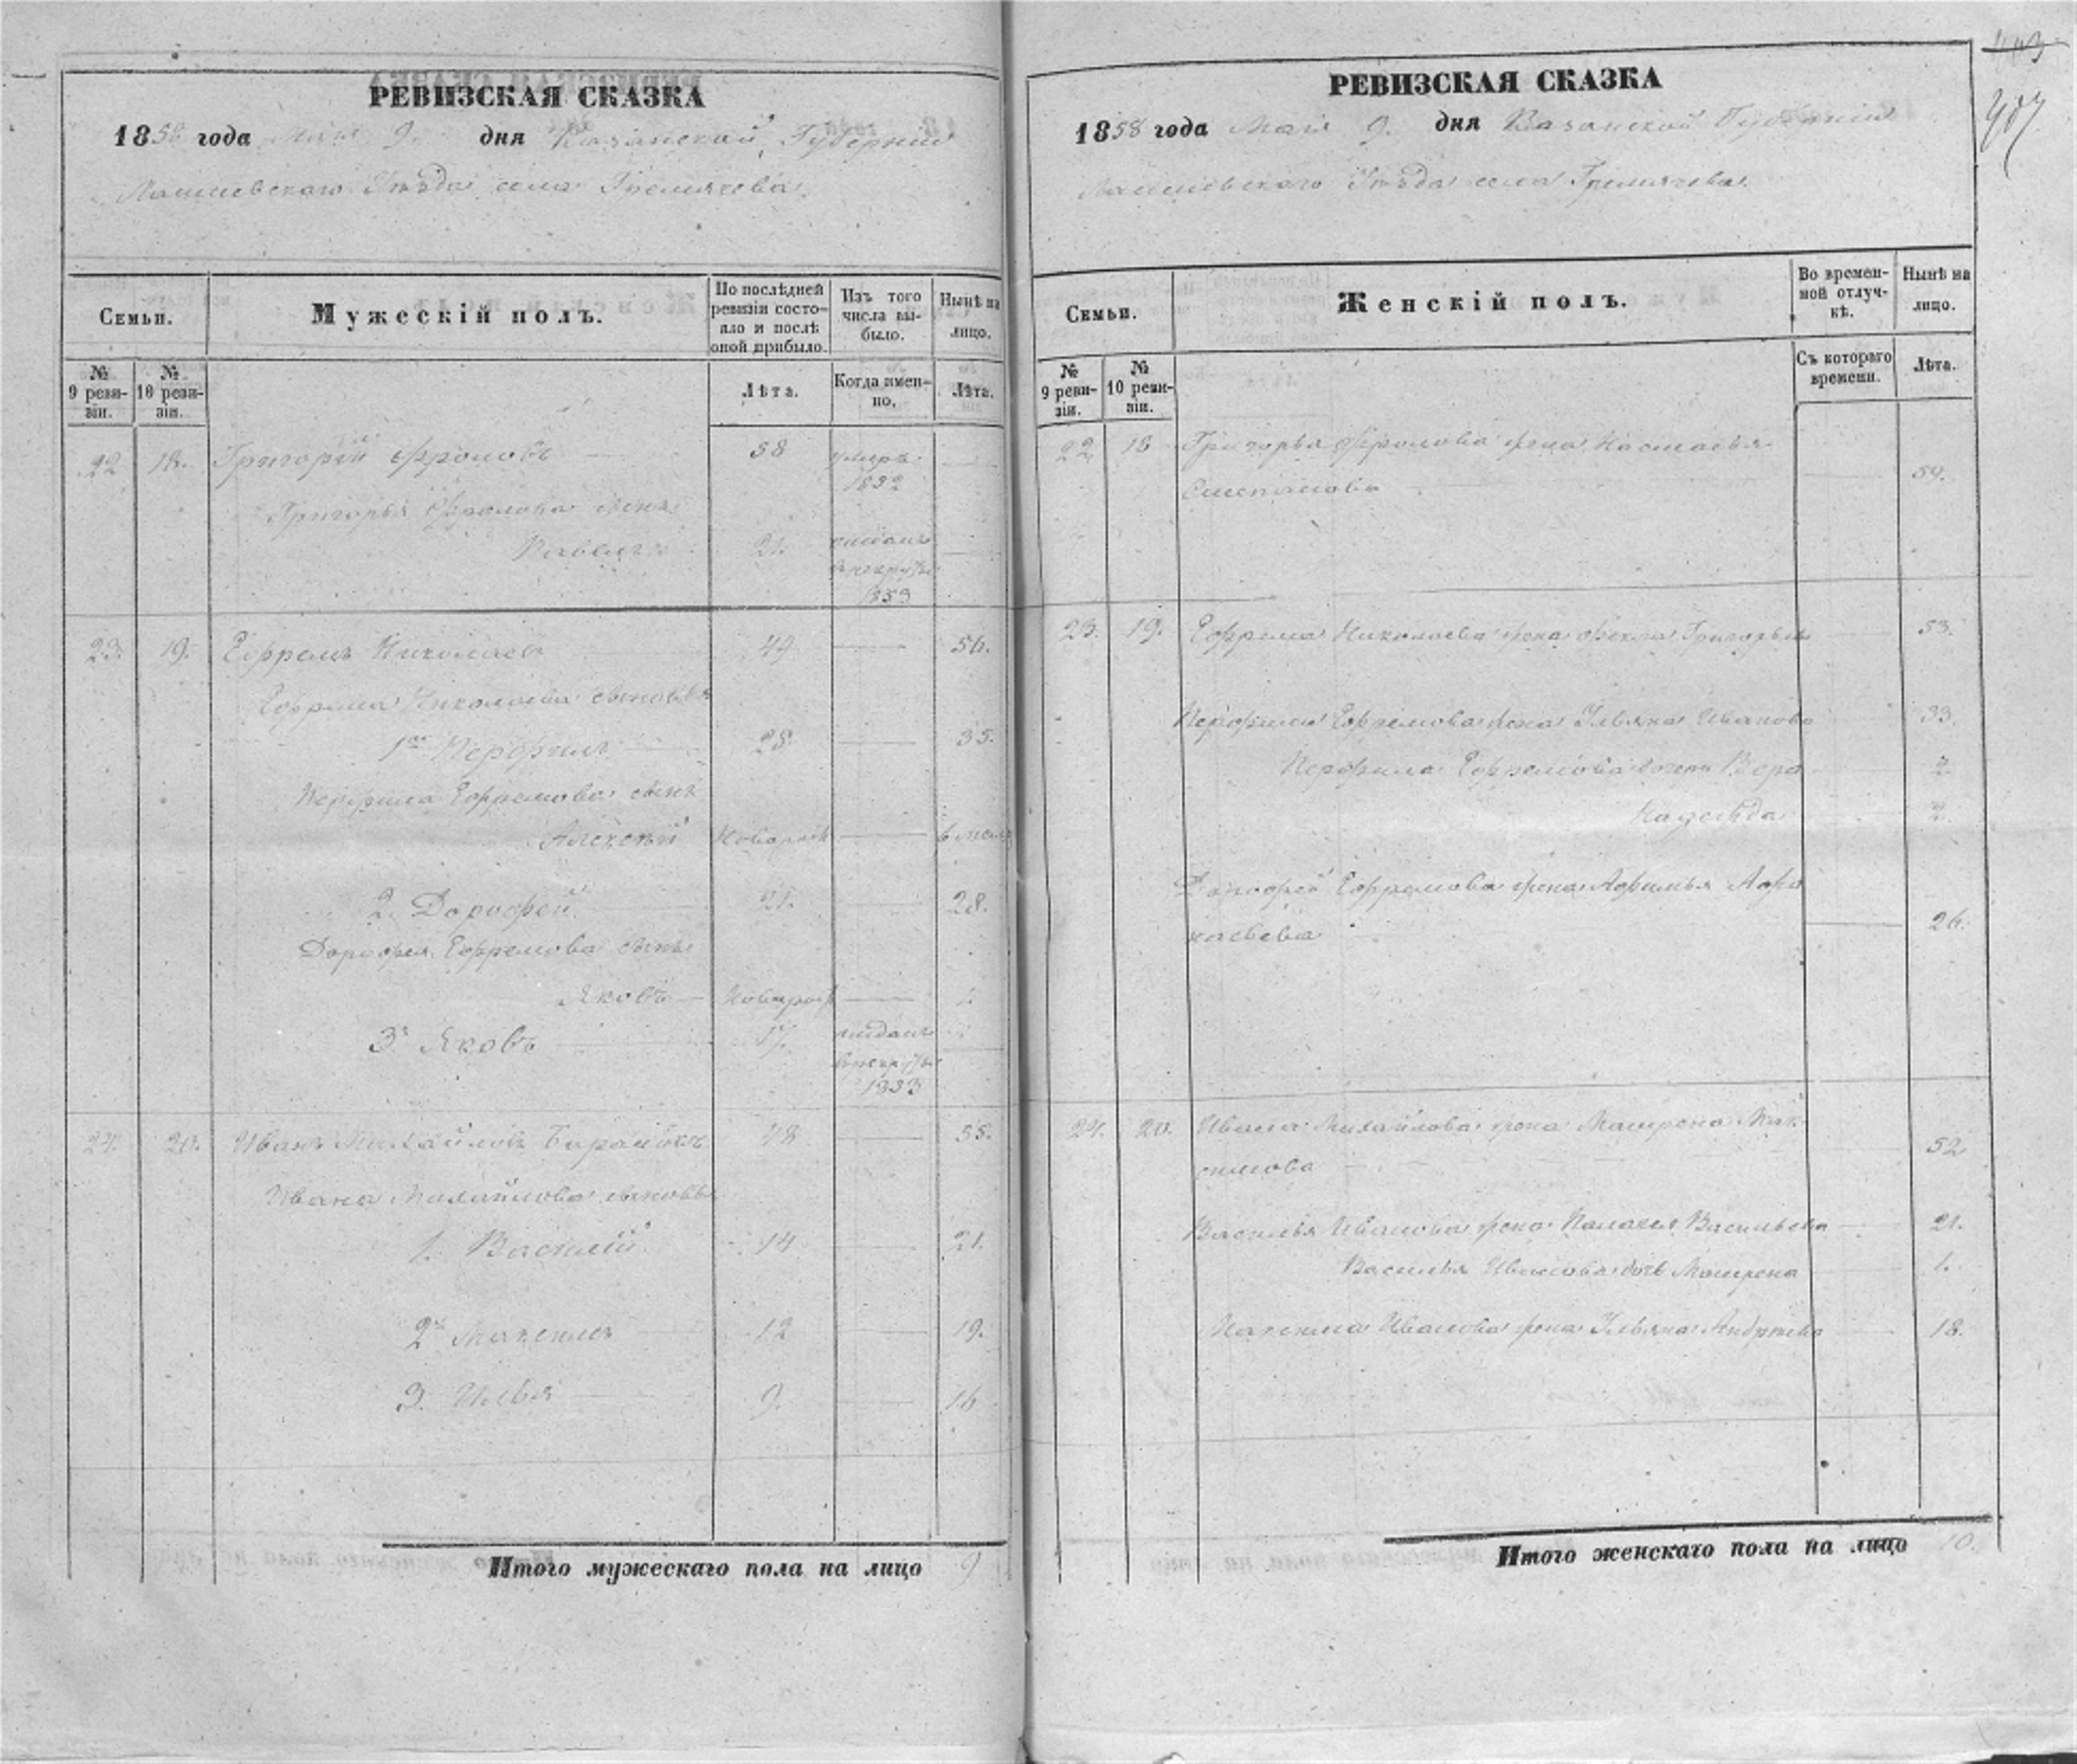 РЕВИЗСКАЯ СКАЗКА
1858 года Мая 9. дня Казанской Губерніи
Лаишевскаго Уѣзда села Гремячева.
Семьи.
Мужескій полъ.
По послѣдней ревизіи состояло и послѣ оной прибыло.
Изъ того числа выбыло.
Нынѣ на лицо.
№ 9 ревизіи.
№ 10 ревизіи.
Лѣта.
Когда именно.
Лѣта.
22 18. Григорій Фроловъ 58 умеръ 1852
Григорья Фролова сынъ
Павелъ 21. отданъ в рекруты 1853
23. 19. Ефремъ Николаевъ 49 56.
Ефрема Николаева сыновья
1й Перфилъ 28 35.
Перфила Ефремова сынъ
Алексѣй новорож
2. Дорофей 21. 28.
Дорофея Ефремова сынъ
Яковъ новорож 1.
3. Яковъ 17. отданъ в рекруты 1853
24. 20. Иванъ Михайловъ 48 55.
Ивана Михайлова сыновья
1. Василій 14 21.
2й Максимъ 12 19.
3. Илья 9. 16
Итого мужескаго пола на лицо 9
РЕВИЗСКАЯ СКАЗКА
1858 года Мая 9. дня Казанской Губерніи
Лаишевскаго Уѣзда села Гремячева.
Семьи.
Женскій полъ.
Во временной отлучкѣ.
Нынѣ на лицо.
№ 9 ревизіи.
№ 10 ревизіи.
Съ котораго времени.
Лѣта.
22 18 Григорья Фролова жена Настасья
Степанова 54.
23. 19. Ефрема Николаева жена Фекла Григорьева 53.
Перфила Ефремова жена Ульяна Иванова 33.
Перфила Ефремова дочери Вера
Надежда 2.
Дорофея Ефремова жена Афимья Афа
насьева 26.
24. 20. Ивана Михайлова жена Матрена Мак
симова 52
Василья Иванова жена Палагея Васильева 21.
Василья Иванова дочь Матрена 1.
Максима Иванова жена Ульяна Андреева 18.
Итого женскаго пола на лицо 10.